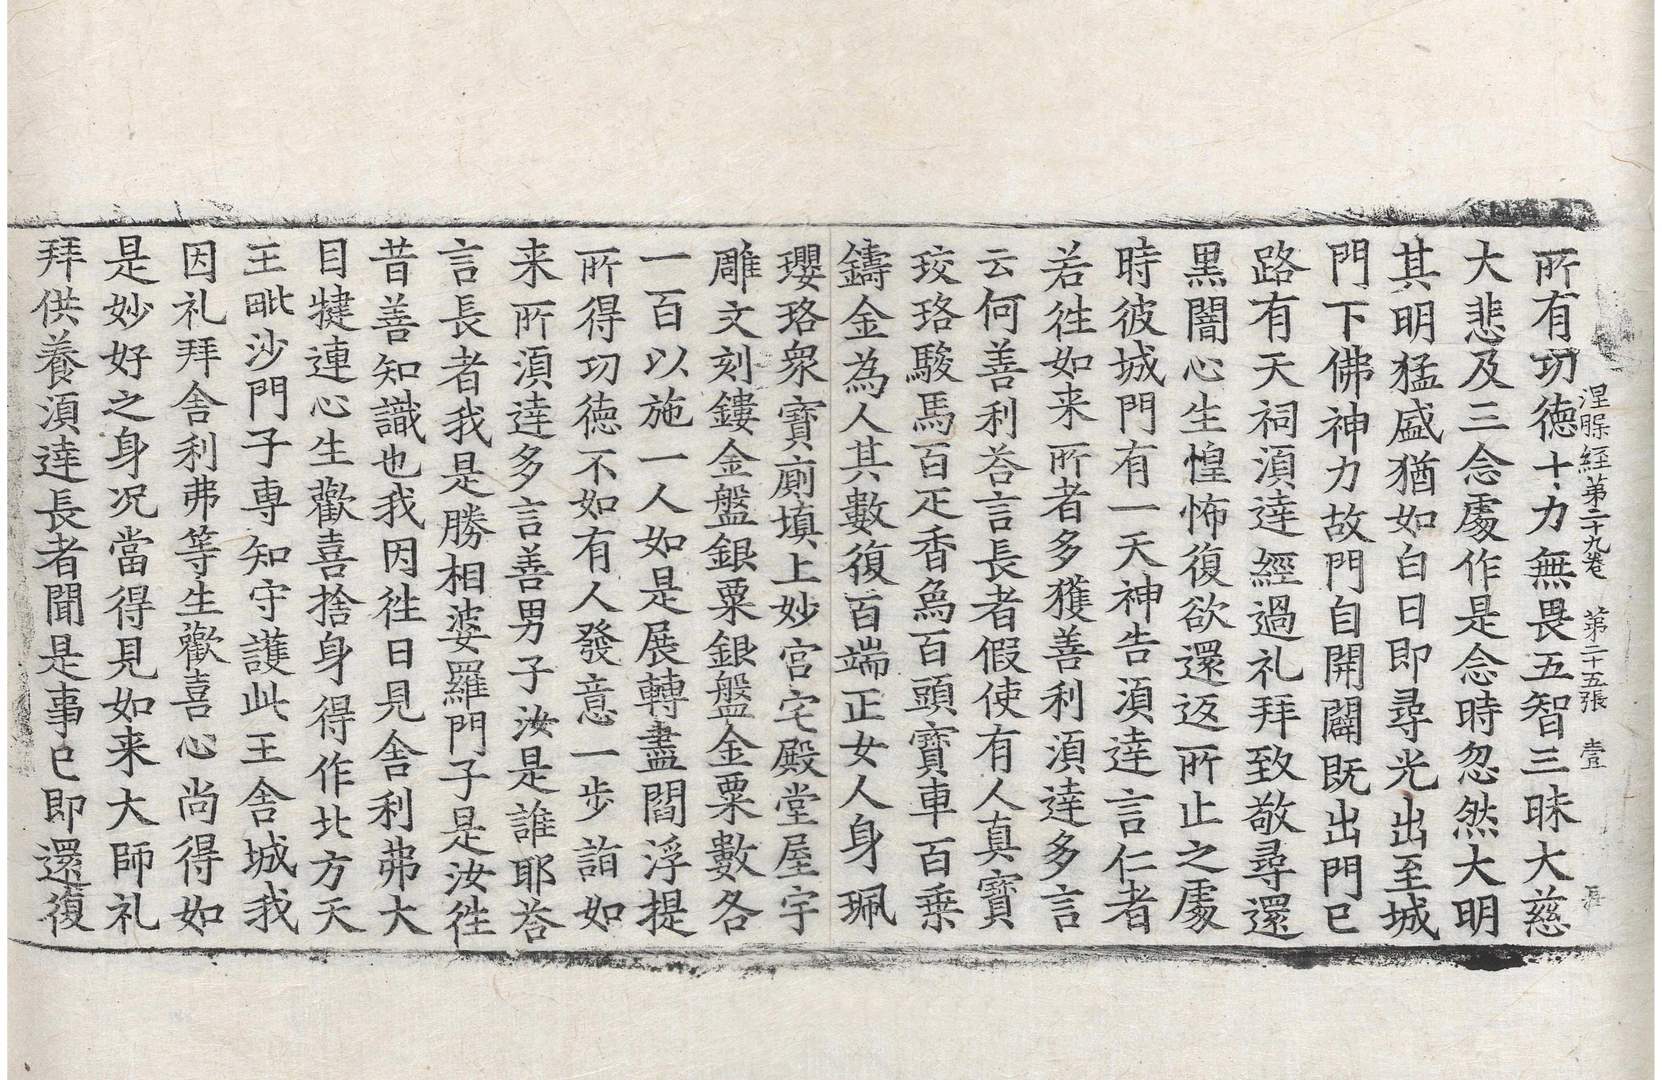 涅槃経第二十九卷 第二十五張 壹
所有功德十力無畏五智三昧大慈
大悲及三念處作是念時忽然大明
其明猛盛猶如白日即尋光出至城
門下佛神力故門自開闢既出門已
路有天祠湏逹經過礼拜致敬尋還
黑闇心生惶怖復欲還返所止之處
時彼城門有一天神告湏逹言仁者
若往如来所者多獲善利湏逹多言
云何善利荅言長者假使有人真寶
珓珞駿馬百疋香象百頭寶車百乗
鑄金為人其數復百端正女人身珮
瓔珞衆寶廁填上妙宫宅殿堂屋宇
雕文刻鏤金盤銀粟銀盤金粟數各
一百以施一人如是展轉盡閻浮提
所得功德不如有人發意一步詣如
来所湏逹多言善男子汝是誰耶荅
言長者我是勝相婆羅門子是汝往
昔善知識也我因往日見舍利弗大
目犍連心生歡喜捨身得作北方天
王毗沙門子専知守護此王舍城我
因礼拜舍利弗等生歡喜心尚得如
是妙好之身况當得見如来大師礼
拜供養湏逹長者聞是事已即還復